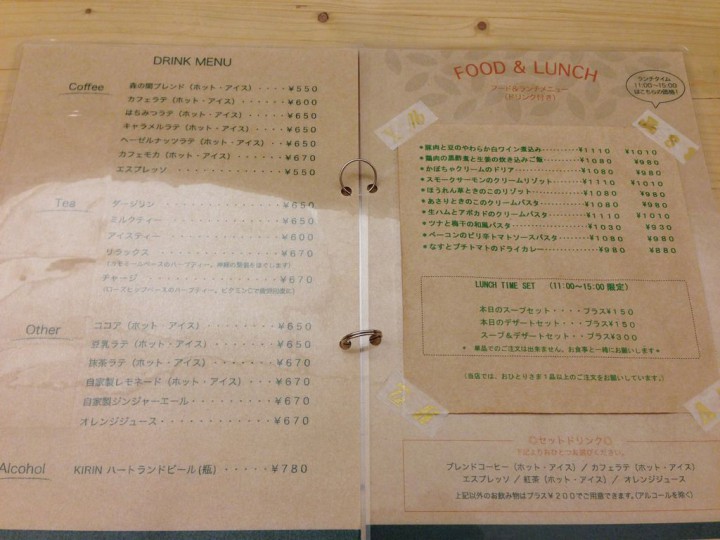 DRINK MENU
Coffee
森の間ブレンド（ホット・アイス）・・・・¥550
カフェラテ（ホット・アイス）・・・・・¥600
はちみつラテ（ホット・アイス）・・・・¥650
キャラメルラテ（ホット・アイス）・・・¥650
ヘーゼルナッツラテ（ホット・アイス）・・¥650
カフェモカ（ホット・アイス）・・・・・¥670
エスプレッソ・・・・・・・・・・・¥550
Tea
ダージリン・・・・・・・・・・・¥650
ミルクティー・・・・・・・・・・¥650
アイスティー・・・・・・・・・・¥600
リラックス・・・・・・・・・・・¥670
チャージ・・・・・・・・・・・・¥670
（ローズヒップベースのハーブティー。ビタミンCで疲労回復に）
Other
ココア（ホット・アイス）・・・・・・¥650
豆乳ラテ（ホット・アイス）・・・・・¥650
抹茶ラテ（ホット・アイス）・・・・・¥670
自家製レモネード（ホット・アイス）・・¥670
自家製ジンジャーエール・・・・・・・¥670
オレンジジュース・・・・・・・・・・¥670
Alcohol
KIRIN ハートランドビール(瓶)・・・・・¥780
FOOD & LUNCH
フード&ランチメニュー
（ドリンク付き）
ランチタイム
11:00～15:00
はこちらの価格！
＊豚肉と豆のやわらか白ワイン煮込み・・・・¥1110 ¥1010
＊鶏肉の黒酢煮と生姜の炊き込みご飯・・・・¥1080 ¥980
＊かぼちゃクリームのドリア・・・・・・・¥1080 ¥980
＊スモークサーモンのクリームリゾット・・・¥1110 ¥1010
＊ほうれん草ときのこのリゾット・・・・・¥1080 ¥980
＊あさりときのこのクリームパスタ・・・・¥1080 ¥980
＊生ハムとアボカドのクリームパスタ・・・・¥1110 ¥1010
＊ツナと梅干の和風パスタ・・・・・・・・¥1030 ¥930
＊ベーコンのピリ辛トマトソースパスタ・・・¥1080 ¥980
＊なすとプチトマトのドライカレー・・・・¥980 ¥880
LUNCH TIME SET （11:00～15:00 限定）
本日のスープセット・・・・プラス¥150
本日のデザートセット・・・プラス¥150
スープ&デザートセット・・プラス¥300
＊ 単品でのご注文は出来ません。お食事と一緒にお願いします＊
（当店では、おひとりさま1品以上のご注文をお願いしています。）
◎セットドリンク◎
下記よりおひとつお選びください。
ブレンドコーヒー（ホット・アイス）／カフェラテ（ホット・アイス）
エスプレッソ／紅茶（ホット・アイス）／オレンジジュース
上記以外のお飲み物はプラス¥200でご用意できます。（アルコールを除く）